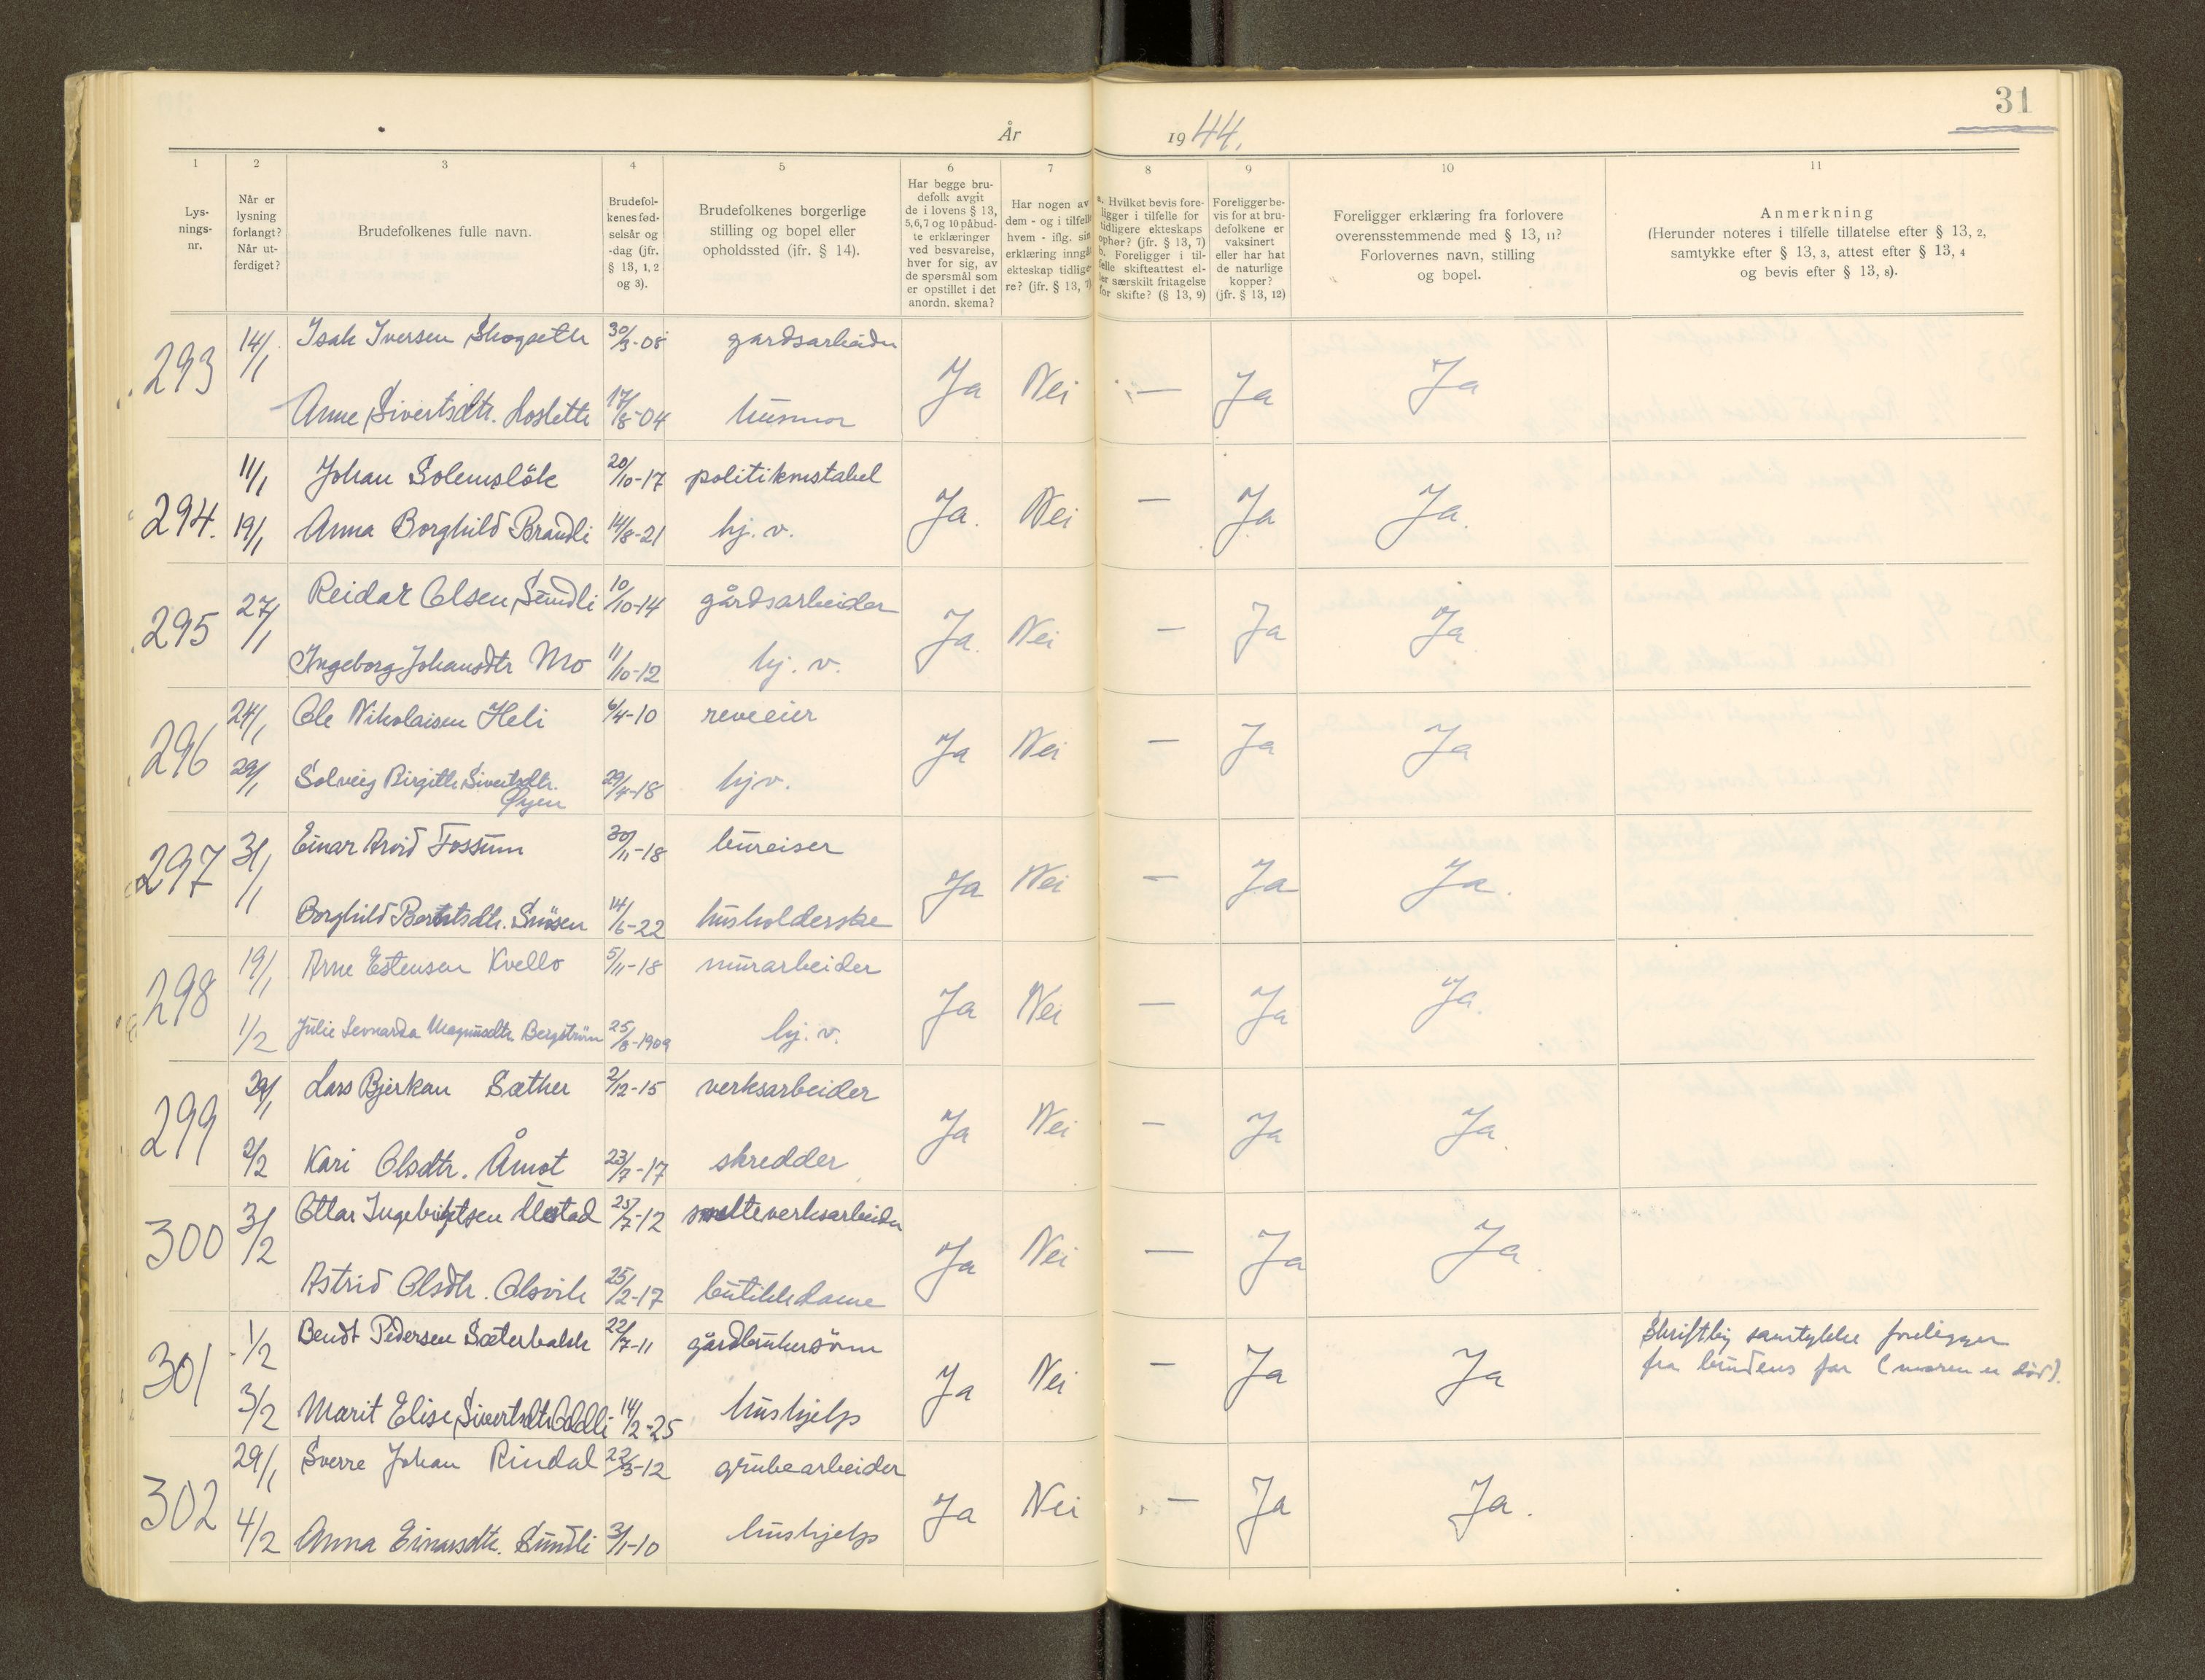 31
År 1944.
1 2 3 4 5 6 7 8 9 10 11
Lys-
nings-
nr.
Når er
lysning
forlangt?
Når ut-
ferdiget?
Brudefolkenes fulle navn.
Brudefol-
kenes fød-
selsår og
-dag (jfr.
§ 13, 1, 2
og 3).
Brudefolkenes borgerlige
stilling og bopel eller
opholdssted (ifr. § 14).
Har begge bru-
defolk avgit
de i lovens § 13,
5, 6, 7 og 10 påbud-
te erklæringer
ved besvarelse,
hver for sig, av
de spørsmål som
er opstillet i det
anordn. skema?
Har nogen av
dem - og i tilfelle
hvem - iflg. sin
erklæring inngå
ekteskap tidlige-
re? (jfr. § 13, 7)
a. Hvilket bevis fore-
ligger i tilfelle for
tidligere ekteskaps
ophør? (jfr. § 13, 7)
b. Foreligger i til-
felle skifteattest el-
ler særskilt fritagelse
for skifte? (§ 13, 9)
Foreligger be-
vis for at bru-
defolkene er
vaksinert
eller har hat
de naturlige
kopper?
(jfr. § 13, 12)
Foreligger erklæring fra forlovere
overensstemmende med § 13, 11?
Forlovernes navn, stilling
og bopel.
Anmerkning
(Herunder noteres i tilfelle tillatelse efter § 13, 2,
samtykke efter § 13, 3, attest efter § 13, 4
og bevis efter § 13, 8).
293 14/1 Isak Iversen Skogseth 30/3-08 gardsarbeider
Anne Sivertsdtr. Loslette 17/8-04 husmor Ja Nei — Ja Ja
294. 11/1 Johan Solemsløk 20/10-17 politikonstabel
19/1 Anna Borghild Brandli 14/8-21 hj. v. Ja. Nei — Ja Ja.
295 27/1 Reidar Olsen Sundli 10/10-14 gårdsarbeider
Ingeborg Johansdtr Mo 11/10-12 hj. v. Ja. Nei — Ja Ja
296 24/1 Ole Nikolaisen Heli 6/4-10 reveeier
29/1 Solveig Birgitte Sivertsdtr. 29/4-18 hjv. Ja Nei — Ja Ja
Øyen
297 31/1 Einar Arvid Fossum 30/11-18 bureiser
Borghild Berntsdtr. Snøsen 14/6-22 husholderske Ja Nei — Ja Ja.
298 19/1 Arne Estensen Kvello 5/11-18 murarbeider
1/2 Julie Leonarda Magnusdtr. Bergstrøm 25/8-1909 hj. v. Ja Nei — Ja Ja.
299 29/1 Lars Bjerkan Sæther 2/12-15 verksarbeider
2/2 Kari Olsdtr. Åmot 23/7-17 skredder Ja Nei — Ja Ja.
300 3/2 Ottar Ingebrigtsen Ulstad 25/7-12 smelteverksarbeider
Astrid Olsdtr. Olsvik 25/2-17 butikkdame Ja Nei — Ja Ja.
301 1/2 Bendt Pedersen Sæterbakk 22/7-11 gårdbrukersønn
3/2 Marit Elise Sivertsdtr Oddli 14/2-25 hushjelp Ja Nei — Ja Ja
Skriftlig samtykke foreligger
fra brudens far (moren er død).
302 29/1 Sverre Johan Rindal 22/3-12 grubearbeider
4/2 Anna Einarsdtr. Sundli 3/1-10 hushjelp Ja Nei — Ja Ja.